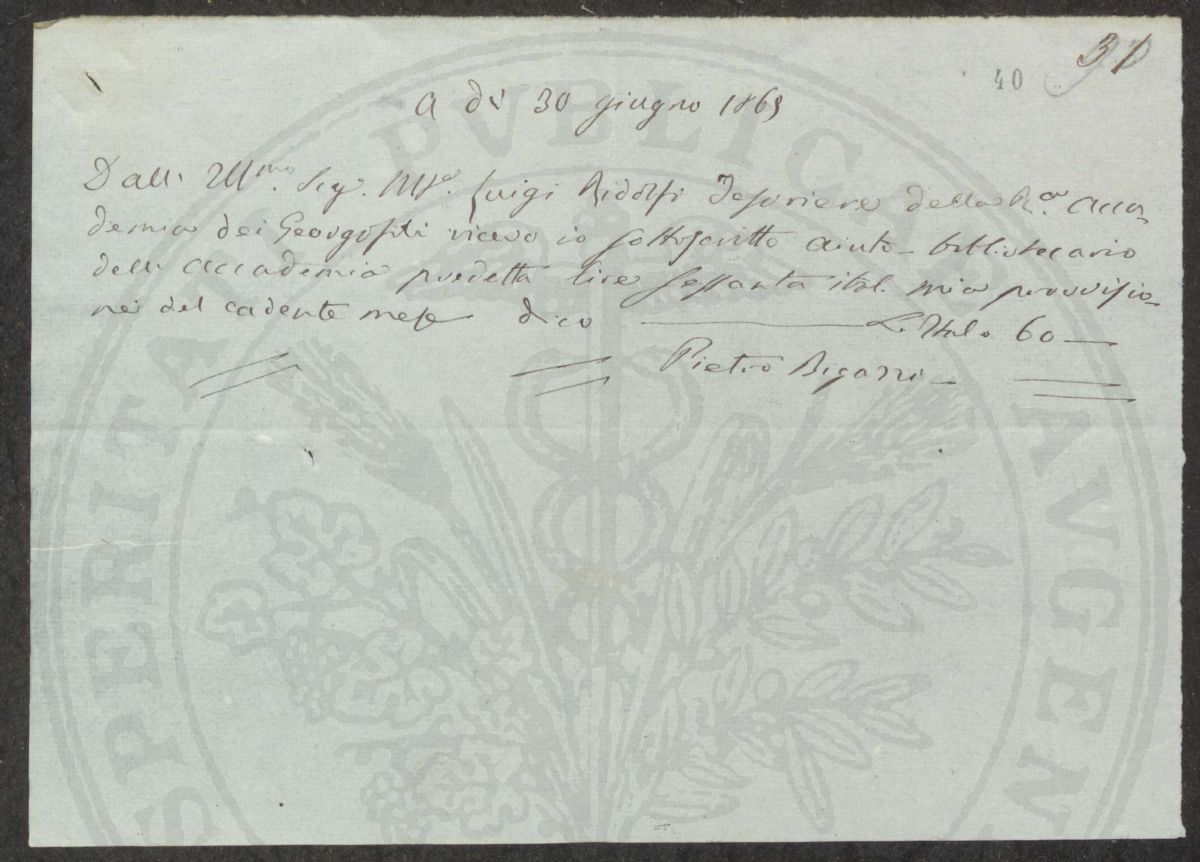 31
40
A dì 30 giugno 1865
Dall' Ill.mo Sig. M.se Luigi Ridolfi Tesoriere della R.a Acca-
demia dei Georgofili ricevo io sottoscritto aiuto-bibliotecario
dell' Accademia predetta lire sessanta ital. mia provvisio-
ne del cadente mese dico L. Ital. 60
Pietro Bigazzi
PERITATI PVBLICAE AVGEN